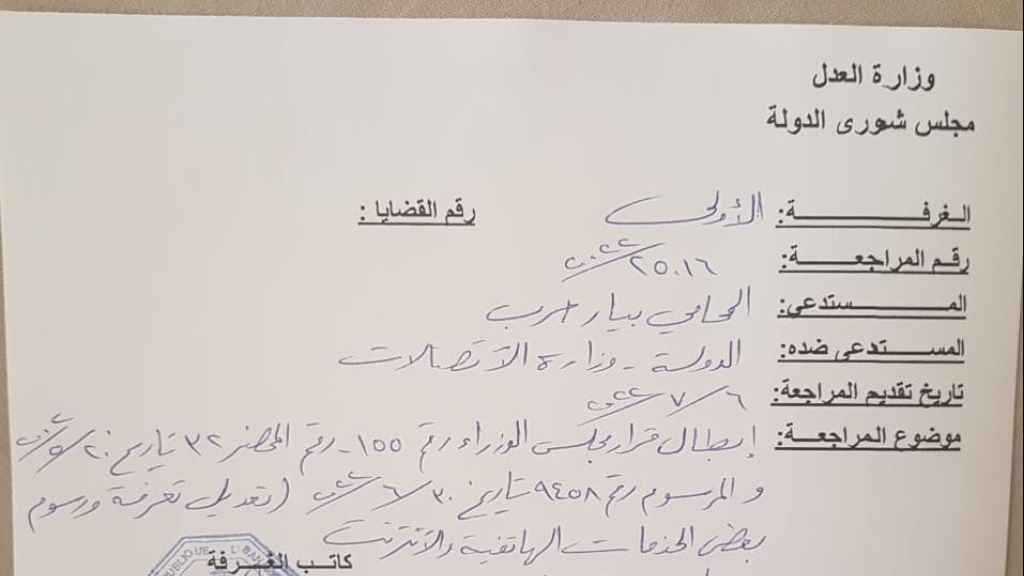 وزارة العدل
مجلس شورى الدولة
الغرفة: الأولى رقم القضايا :
رقم المراجعة: ٢٥٠١٦/٢٠٢٢
المستدعي: المحامي بيار حرب
المستدعى ضده: الدولة - وزارة الاتصالات
تاريخ تقديم المراجعة: ٦/٧/٢٠٢٢
موضوع المراجعة: إبطال قرار مجلس الوزراء رقم ١٥٥ - رقم المحضر ٣٢ تاريخ ٢٠/٥/٢٠٢٢
و المرسوم رقم ٩٤٥٨ تاريخ ٣٠/٦/٢٠٢٢ (تعديل تعرفة ورسوم
بعض الخدمات الهاتفية والانترنت
كاتب الغرفة